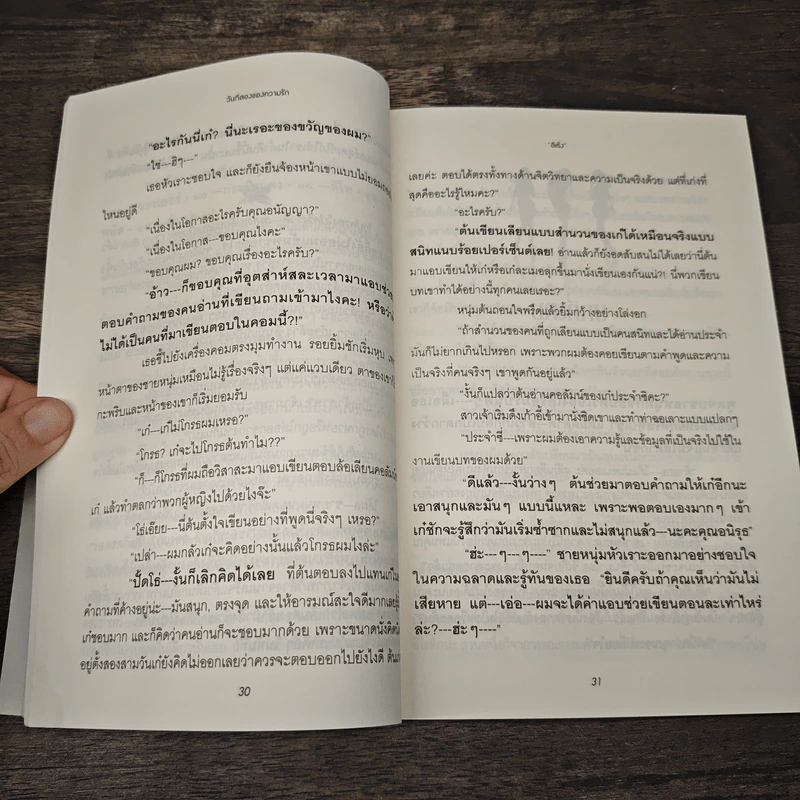 วันที่สองของความรัก
"อะไรกันนี่เก๋? นี่นะเรอะของขวัญของผม?"
"ใช่---ฮิๆ---"
เธอหัวเราะชอบใจ และก็ยังยืนจ้องหน้าเขาแบบไม่ยอม
ไหนอยู่ดี
"เนื่องในโอกาสอะไรครับคุณอนัญญา?"
"เนื่องในโอกาส---ขอบคุณไงคะ"
"ขอบคุณผม? ขอบคุณเรื่องอะไรครับ?"
"อ้าว---ก็ขอบคุณที่อุตส่าห์สละเวลามาแอบช่วย
ตอบคำถามของคนอ่านที่เขียนถามเข้ามาไงคะ! หรือว่า
ไม่ได้เป็นคนที่มาเขียนตอบในคอมนี้?!"
เธอชี้ไปยังเครื่องคอมตรงมุมทำงาน รอยยิ้มชักเริ่มหุบ
หน้าตาของชายหนุ่มเหมือนไม่รู้เรื่องจริงๆ แต่แค่แวบเดียว ตาของเขา
กะพริบและหน้าของเขาก็เริ่มยอมรับ
"เก๋---เก๋ไม่โกรธผมเหรอ?"
"โกรธ? เก๋จะไปโกรธต้นทำไม??"
"ก็---ก็โกรธที่ผมถือวิสาสะมาแอบเขียนตอบล้อเลียนคอลัมน์
เก๋ แล้วทำตลกว่าพวกผู้หญิงไปด้วยไงจ๊ะ"
"โธ่เอ๊ยย---นี่ต้นตั้งใจเขียนอย่างที่พูดนี่จริงๆ เหรอ?"
"เปล่า---ผมกลัวเก๋จะคิดอย่างนั้นแล้วโกรธผมไงล่ะ"
"ปั้ดโธ่---งั้นก็เลิกคิดได้เลย ที่ต้นตอบลงไปแทนเก๋
คำถามที่ค้างอยู่น่ะ---มันสนุก, ตรงจุด และให้อารมณ์สะใจดีมากเลย
เก๋ชอบมาก และก็คิดว่าคนอ่านก็จะชอบมากด้วย เพราะขนาดนั่งคิด
อยู่ตั้งสองสามวันเก๋ยังคิดไม่ออกเลยว่าควรจะตอบออกไปยังไงดี ต้น
30
'ฮีโร่'
เลยค่ะ ตอบได้ตรงทั้งทางด้านจิตวิทยาและความเป็นจริงด้วย แต่ที่เก่งที่
สุดคืออะไรรู้ไหมคะ?"
"อะไรครับ?"
"ต้นเขียนเลียนแบบสำนวนของเก๋ได้เหมือนจริงแบบ
สนิทแนบร้อยเปอร์เซ็นต์เลย! อ่านแล้วก็ยังอดสับสนไม่ได้เลยว่านี่ต้น
มาแอบเขียนให้เก๋หรือเก๋ละเมอลุกขึ้นมานั่งเขียนเองกันแน่?! นี่พวกเขียน
บทเขาทำได้อย่างนี้ทุกคนเลยเรอะ?"
หนุ่มต้นถอนใจพรืดแล้วยิ้มกว้างอย่างโล่งอก
"ถ้าสำนวนของคนที่ถูกเลียนแบบเป็นคนสนิทและได้อ่านประจำ
มันก็ไม่ยากเกินไปหรอก เพราะพวกผมต้องคอยเขียนตามคำพูดและความ
เป็นจริงที่คนจริงๆ เขาพูดกันอยู่แล้ว"
"งั้นก็แปลว่าต้นอ่านคอลัมน์ของเก๋ประจำซิคะ?"
สาวเจ้าเริ่มดึงเก้าอี้เข้ามานั่งชิดเขาและทำท่าฉอเลาะแบบแปลกๆ
"ประจำซี่---เพราะผมต้องเอาความรู้และข้อมูลที่เป็นจริงไปใช้ใน
งานเขียนบทของผมด้วย"
"ดีแล้ว---งั้นว่างๆ ต้นช่วยมาตอบคำถามให้เก๋อีกนะ
เอาสนุกและมันๆ แบบนี้แหละ เพราะพอตอบเองมากๆ เข้า
เก๋ชักจะรู้สึกว่ามันเริ่มซ้ำซากและไม่สนุกแล้ว---นะคะคุณอนิรุธ"
"ฮ่ะ---ๆ---ๆ----" ชายหนุ่มหัวเราะออกมาอย่างชอบใจ
ในความฉลาดและรู้ทันของเธอ "ยินดีครับถ้าคุณเห็นว่ามันไม่
เสียหาย แต่---เอ่อ---ผมจะได้ค่าแอบช่วยเขียนตอนละเท่าไหร่
ล่ะ?---ฮ่ะๆ----"
31